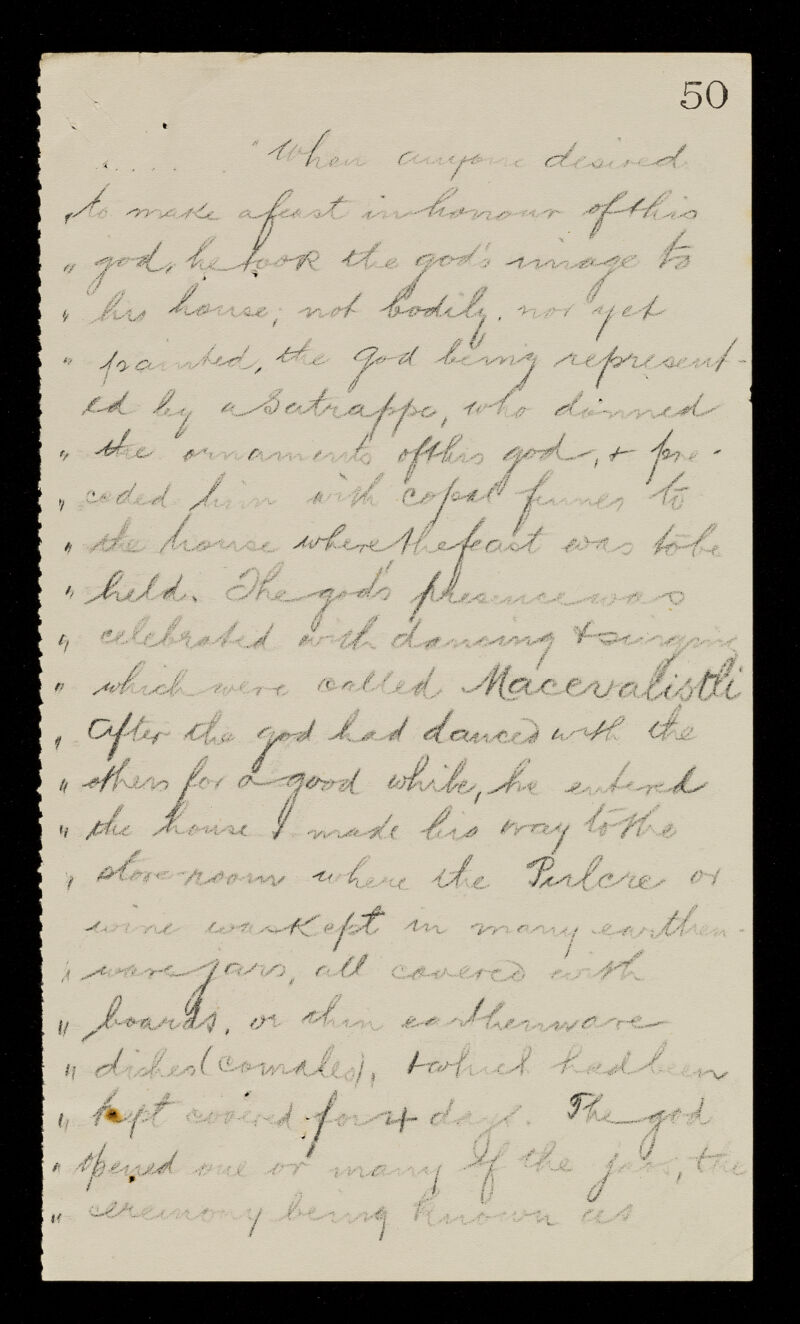 50
. . . . . . "When anyone desired
" to make a feast in honour of this
" god, he took the god's image to
" his house; not bodily, nor yet
" painted, the god being represent-
ed by a Satrappe, who donned
" the ornaments of this god, & pre-
" ceded him with copal fumes to
" the house where the feast was to be
" held. The god's presence was
" celebrated with dancing & singing
" which were called Macevalistli
" After the god had danced with the
" others for a good while, he entered
" the house & made his way to the
" store-room where the Pulcre or
wine was kept in many earthen-
" ware jars, all covered with
" boards, or thin earthenware
" dishes (comales), & which had been
" kept covered for 4 days. The god
" opened one or many of the jars, the
" ceremony being known as